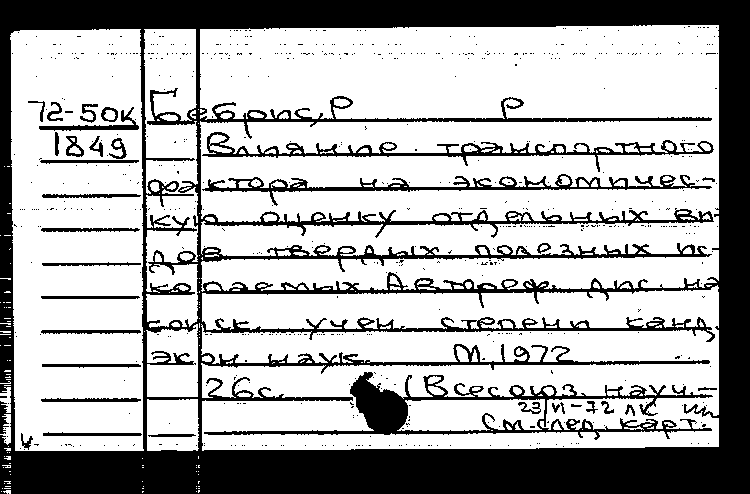 72-50к Бебрис, Р Р
1849 Влияние транспортного
фактора на экономичес-
кую оценку отдельных ви-
дов твердых полезных ис-
копаемых. Автореф. дис. на
соиск. учен. степени канд.
экон. наук. М., 1972
26с. (Всесоюз. науч.-
23/VI-72 ЛК
См. след. карт.